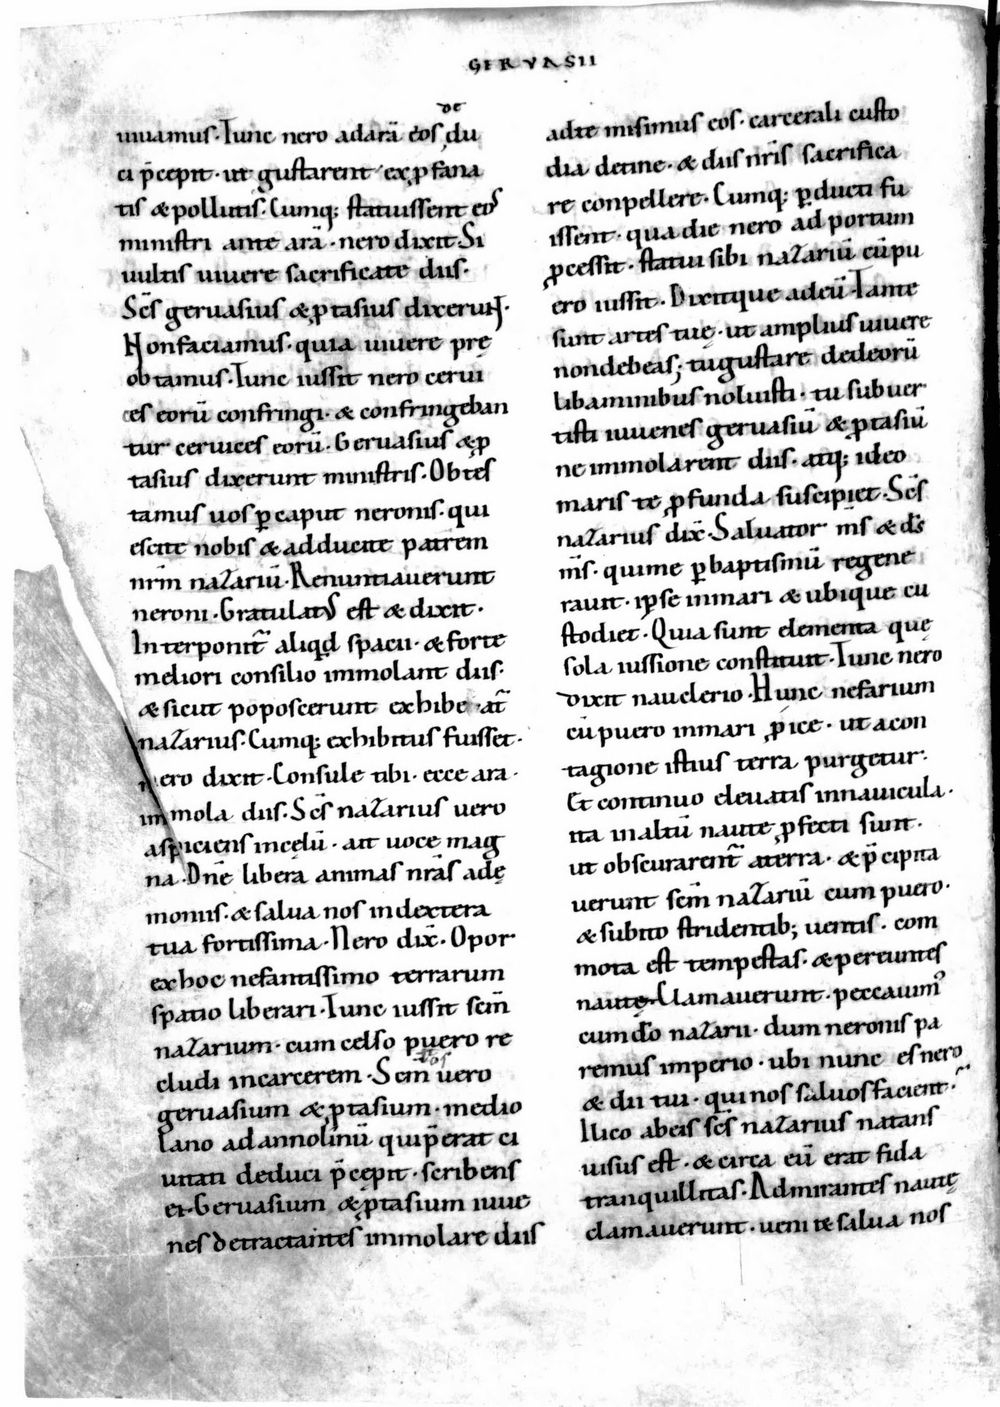 GERVASII
de
uiuamus. Tunc nero ad arā eos du
ci p̄cepit. ut gustarent ex ꝓfana
tis & pollutis. Cumq; statuissent eos
ministri ante arā. nero dixit Si
uultis uiuere sacrificate diis.
Sc̄s geruasius & ꝓtasius dixerunt.
Non faciamus. quia uiuere prę
obtamus. Tunc iussit nero cerui
ces eorū confringi. & confringeban
tur ceruices eorū. Geruasius & ꝓ
tasius dixerunt ministris. Obtes
tamus uos ꝑ caput neronis. qui
escite nobis & adducite patrem
nrm̄ naZariū. Renuntiauerunt
neroni. Gratulatus est & dixit.
Interponit̄ aliqd spacii. & forte
meliori consilio immolant diis.
& sicut poposcerunt exhibe at̄
naZarius. Cumq; exhibitus fuisset.
nero dixit. Consule tibi. ecce ara.
immola diis. Sc̄s naZarius uero
aspiciens in cęlū. ait uoce mag
na. Dn̄e libera animas nr̄as a dę
moniis. & salua nos in dextera
tua fortissima. Nero dix̄. Opor
ex hoc nefantissimo terrarum
spatio liberari. Tunc iussit scm̄
naZarium. cum celso puero re
cludi in carcerem. Scm̄ uero
geruasium & ꝓtasium. medio
lano ad annolinū qui p̄erat ci
uitati deduci p̄cepit. scribens
ei. Geruasium & ꝓtasium iuue
nes detractantes immolare diis
ad te misimus eos. carcerali custo
dia detine. & diis nr̄is sacrifica
re conpellere. Cumq; ꝑducti fu
issent. qua die nero ad portum
ꝓcessit. statui sibi naZariū cū pu
ero iussit. Dixitque ad eū. Tante
sunt artes tuę. ut amplius uiuere
non debeas; tu gustare de deorū
libaminibus noluisti. tu subuer
tisti iuuenes geruasiū & ꝓtasiū
ne immolarent diis. atq; ideo
maris te ꝓfunda suscipiet. Sc̄s
naZarius dix̄. Saluator m̄s & d̄s
m̄s. qui me ꝑ baptismū regene
rauit. ipse in mari & ubique cu
stodiet. Quia sunt elementa quę
sola iussione constituit. Tunc nero
dixit nauclerio. Hunc nefarium
cū puero in mari ꝓice. ut a con
tagione istius terra purgetur.
Et continuo eleuatis in nauicula.
ita in altū naute ꝓfecti sunt.
ut obscurarent̄ a terra. & p̄cipita
uerunt scm̄ naZariū cum puero.
& subito stridentib; uentis. com
mota est tempestas. & pereuntes
nautę. Clamauerunt. peccauim᾽
cum dō naZarii. dum neronis pa
remus imperio. ubi nunc es nero
& dii tui. qui nos saluos facient.
Ilico abeis sc̄s naZarius natans
uisus est. & circa eū erat fida
tranquillitas. Admirantes nautę
clamauerunt. ueni te salua nos